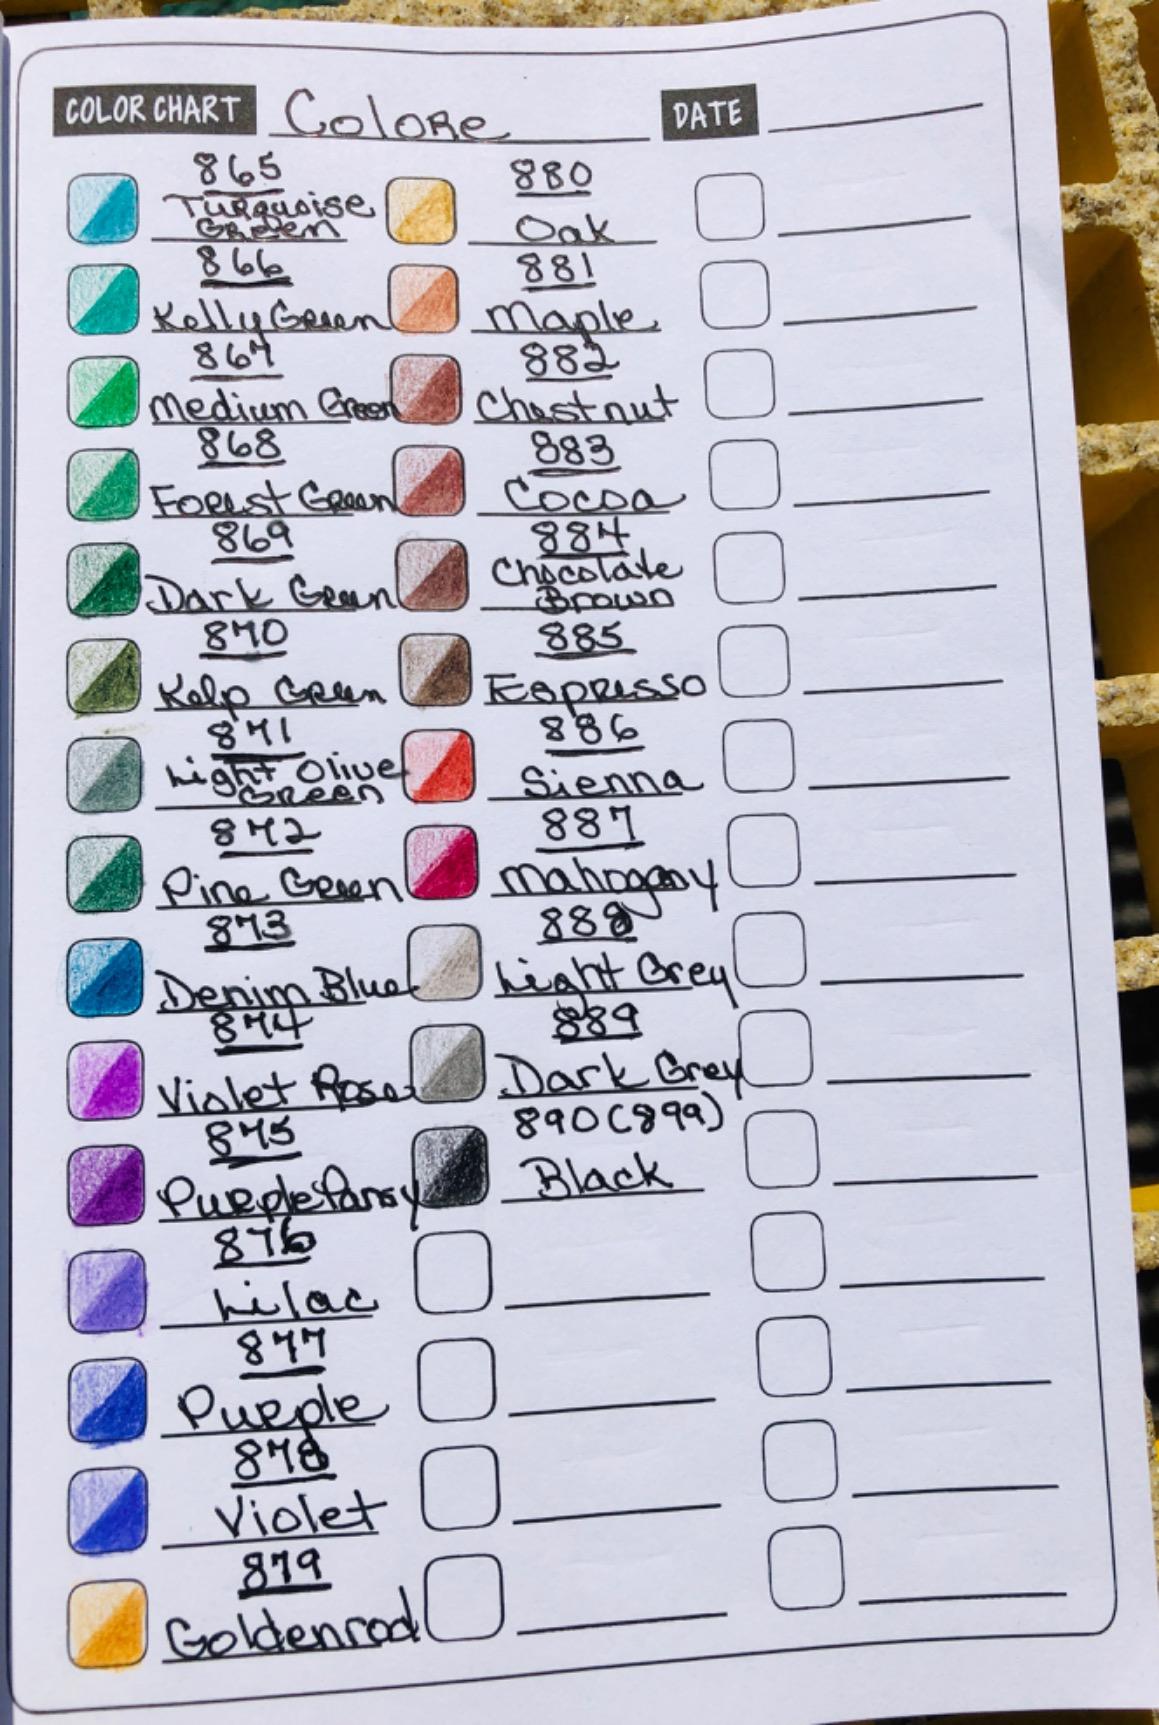 COLOR CHART Colore DATE
865
Turquoise
Green
866
Kelly Green
867
Medium Green
868
Forest Green
869
Dark Green
870
Kelp Green
871
Light Olive
Green
872
Pine Green
873
Denim Blue
874
Violet Rose
875
Purple Pansy
876
Lilac
877
Purple
878
Violet
879
Goldenrod
880
Oak
881
Maple
882
Chestnut
883
Cocoa
884
Chocolate
Brown
885
Espresso
886
Sienna
887
Mahogany
888
Light Grey
889
Dark Grey
890 (899)
Black